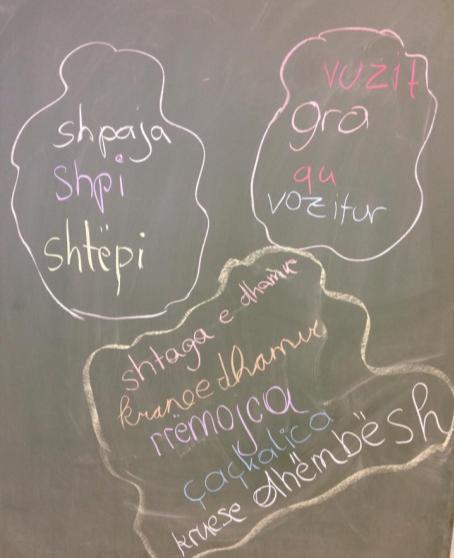 shpaja
shpi
shtëpi
vozit
gra
qu
vozitur
shtaga e dhamve
kranoedhamve
rrëmojca
çaçkalica
kruese dhëmbësh